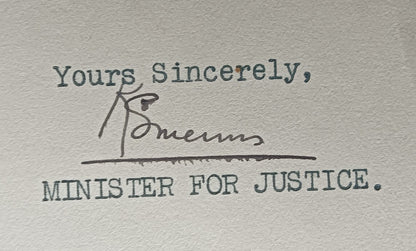 Yours Sincerely,
MINISTER FOR JUSTICE.